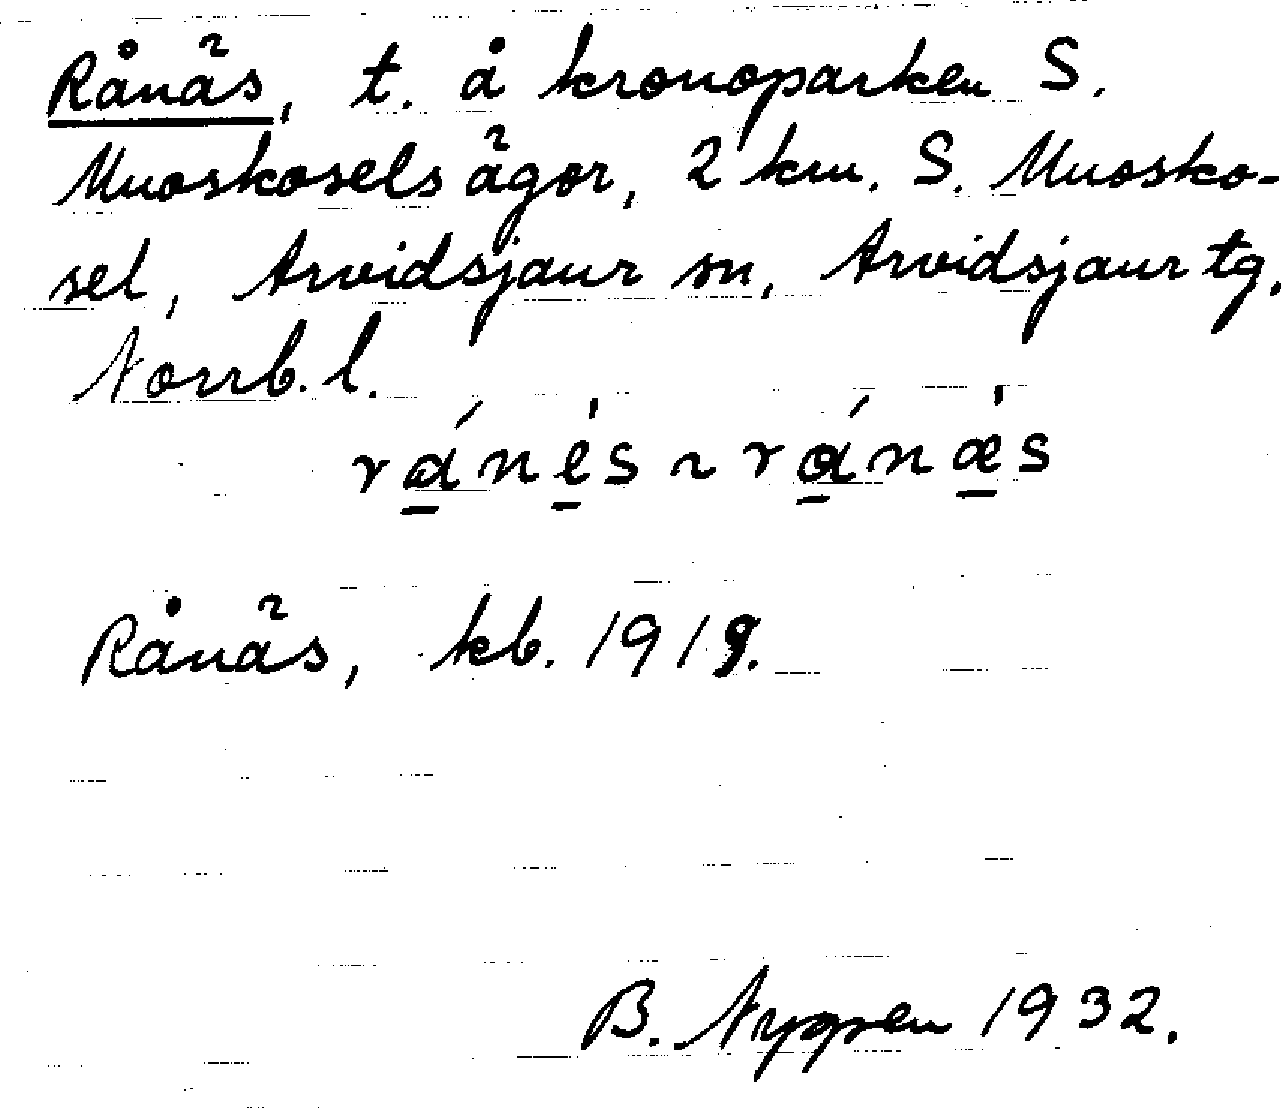 Rånäs, t. å kronoparken S.
Muoskosels ägor, 2 km. S. Muosko-
sel, Arvidsjaur sn, Arvidsjaur tg.
Norrb. l.
rá̱nè̱s ~ rá̱næ̱̀s
Rånäs, kb. 1919.
B. Nygren 1932.